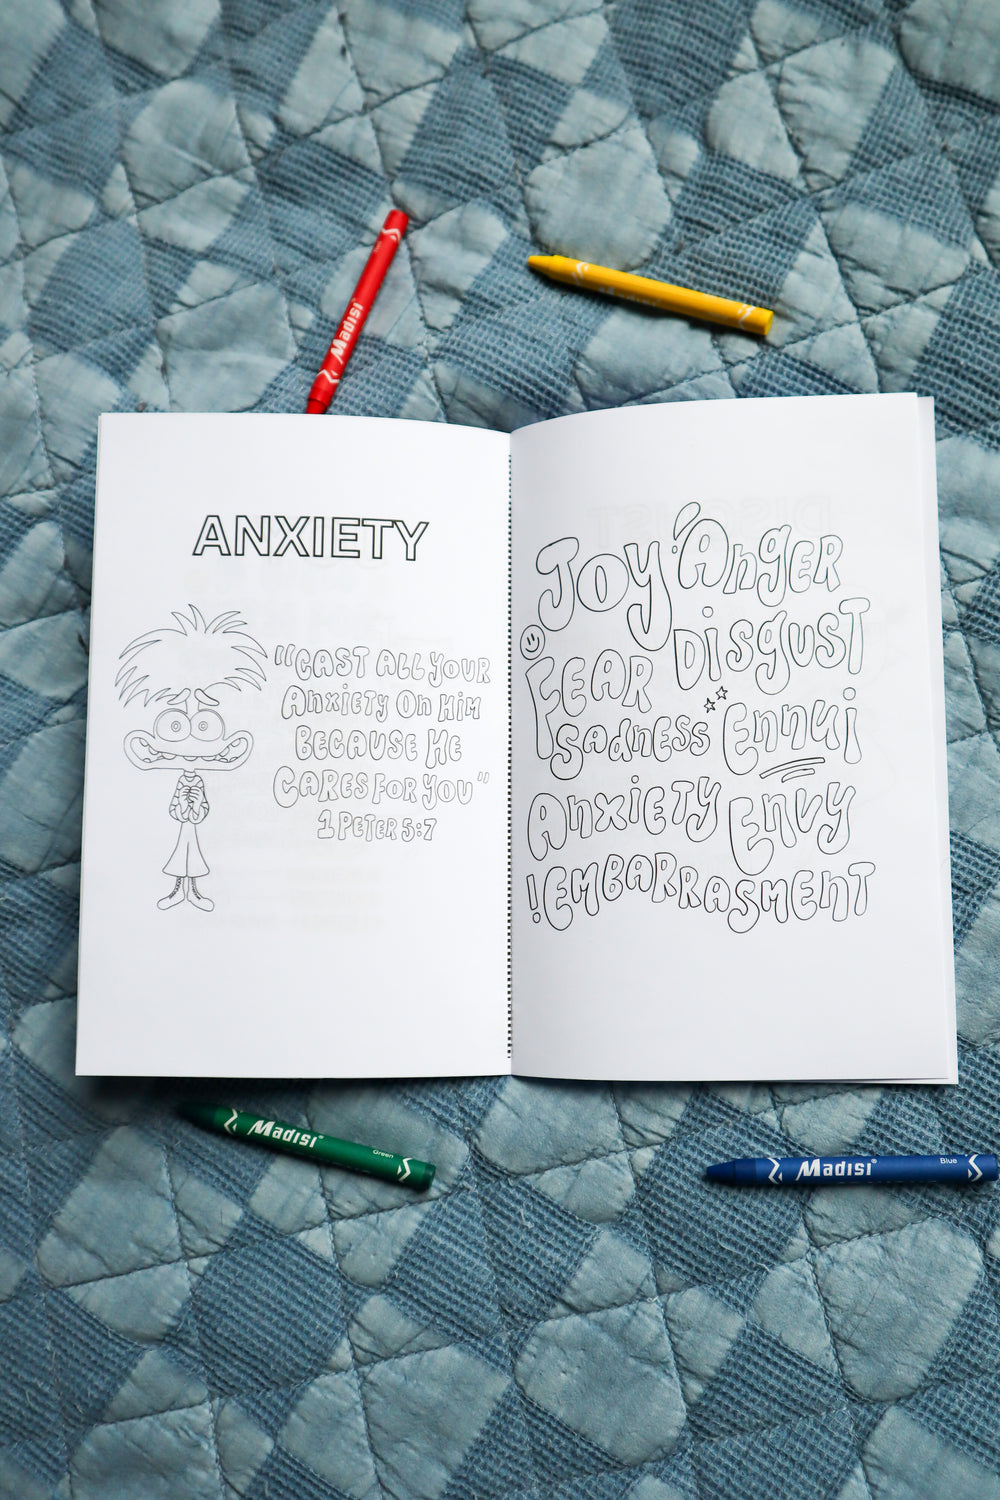 Madisi
ANXIETY
"CAST ALL YOUR
Anxiety On Him
BECAUSE HE
CARES FOR YOU"
1 PETER 5:7
Joy Anger
Disgust
FEAR
Sadness Ennui
Anxiety Envy
!EMBARRASMENT
Madisi® Green
Madisi® Blue